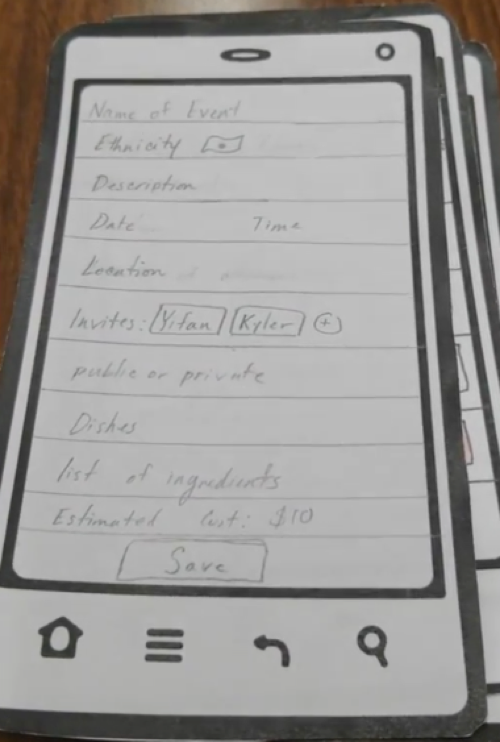 Name of Event
Ethnicity
Description
Date Time
Location
Invites: Yifan Kyler +
public or private
Dishes
list of ingredients
Estimated Cost: $10
Save